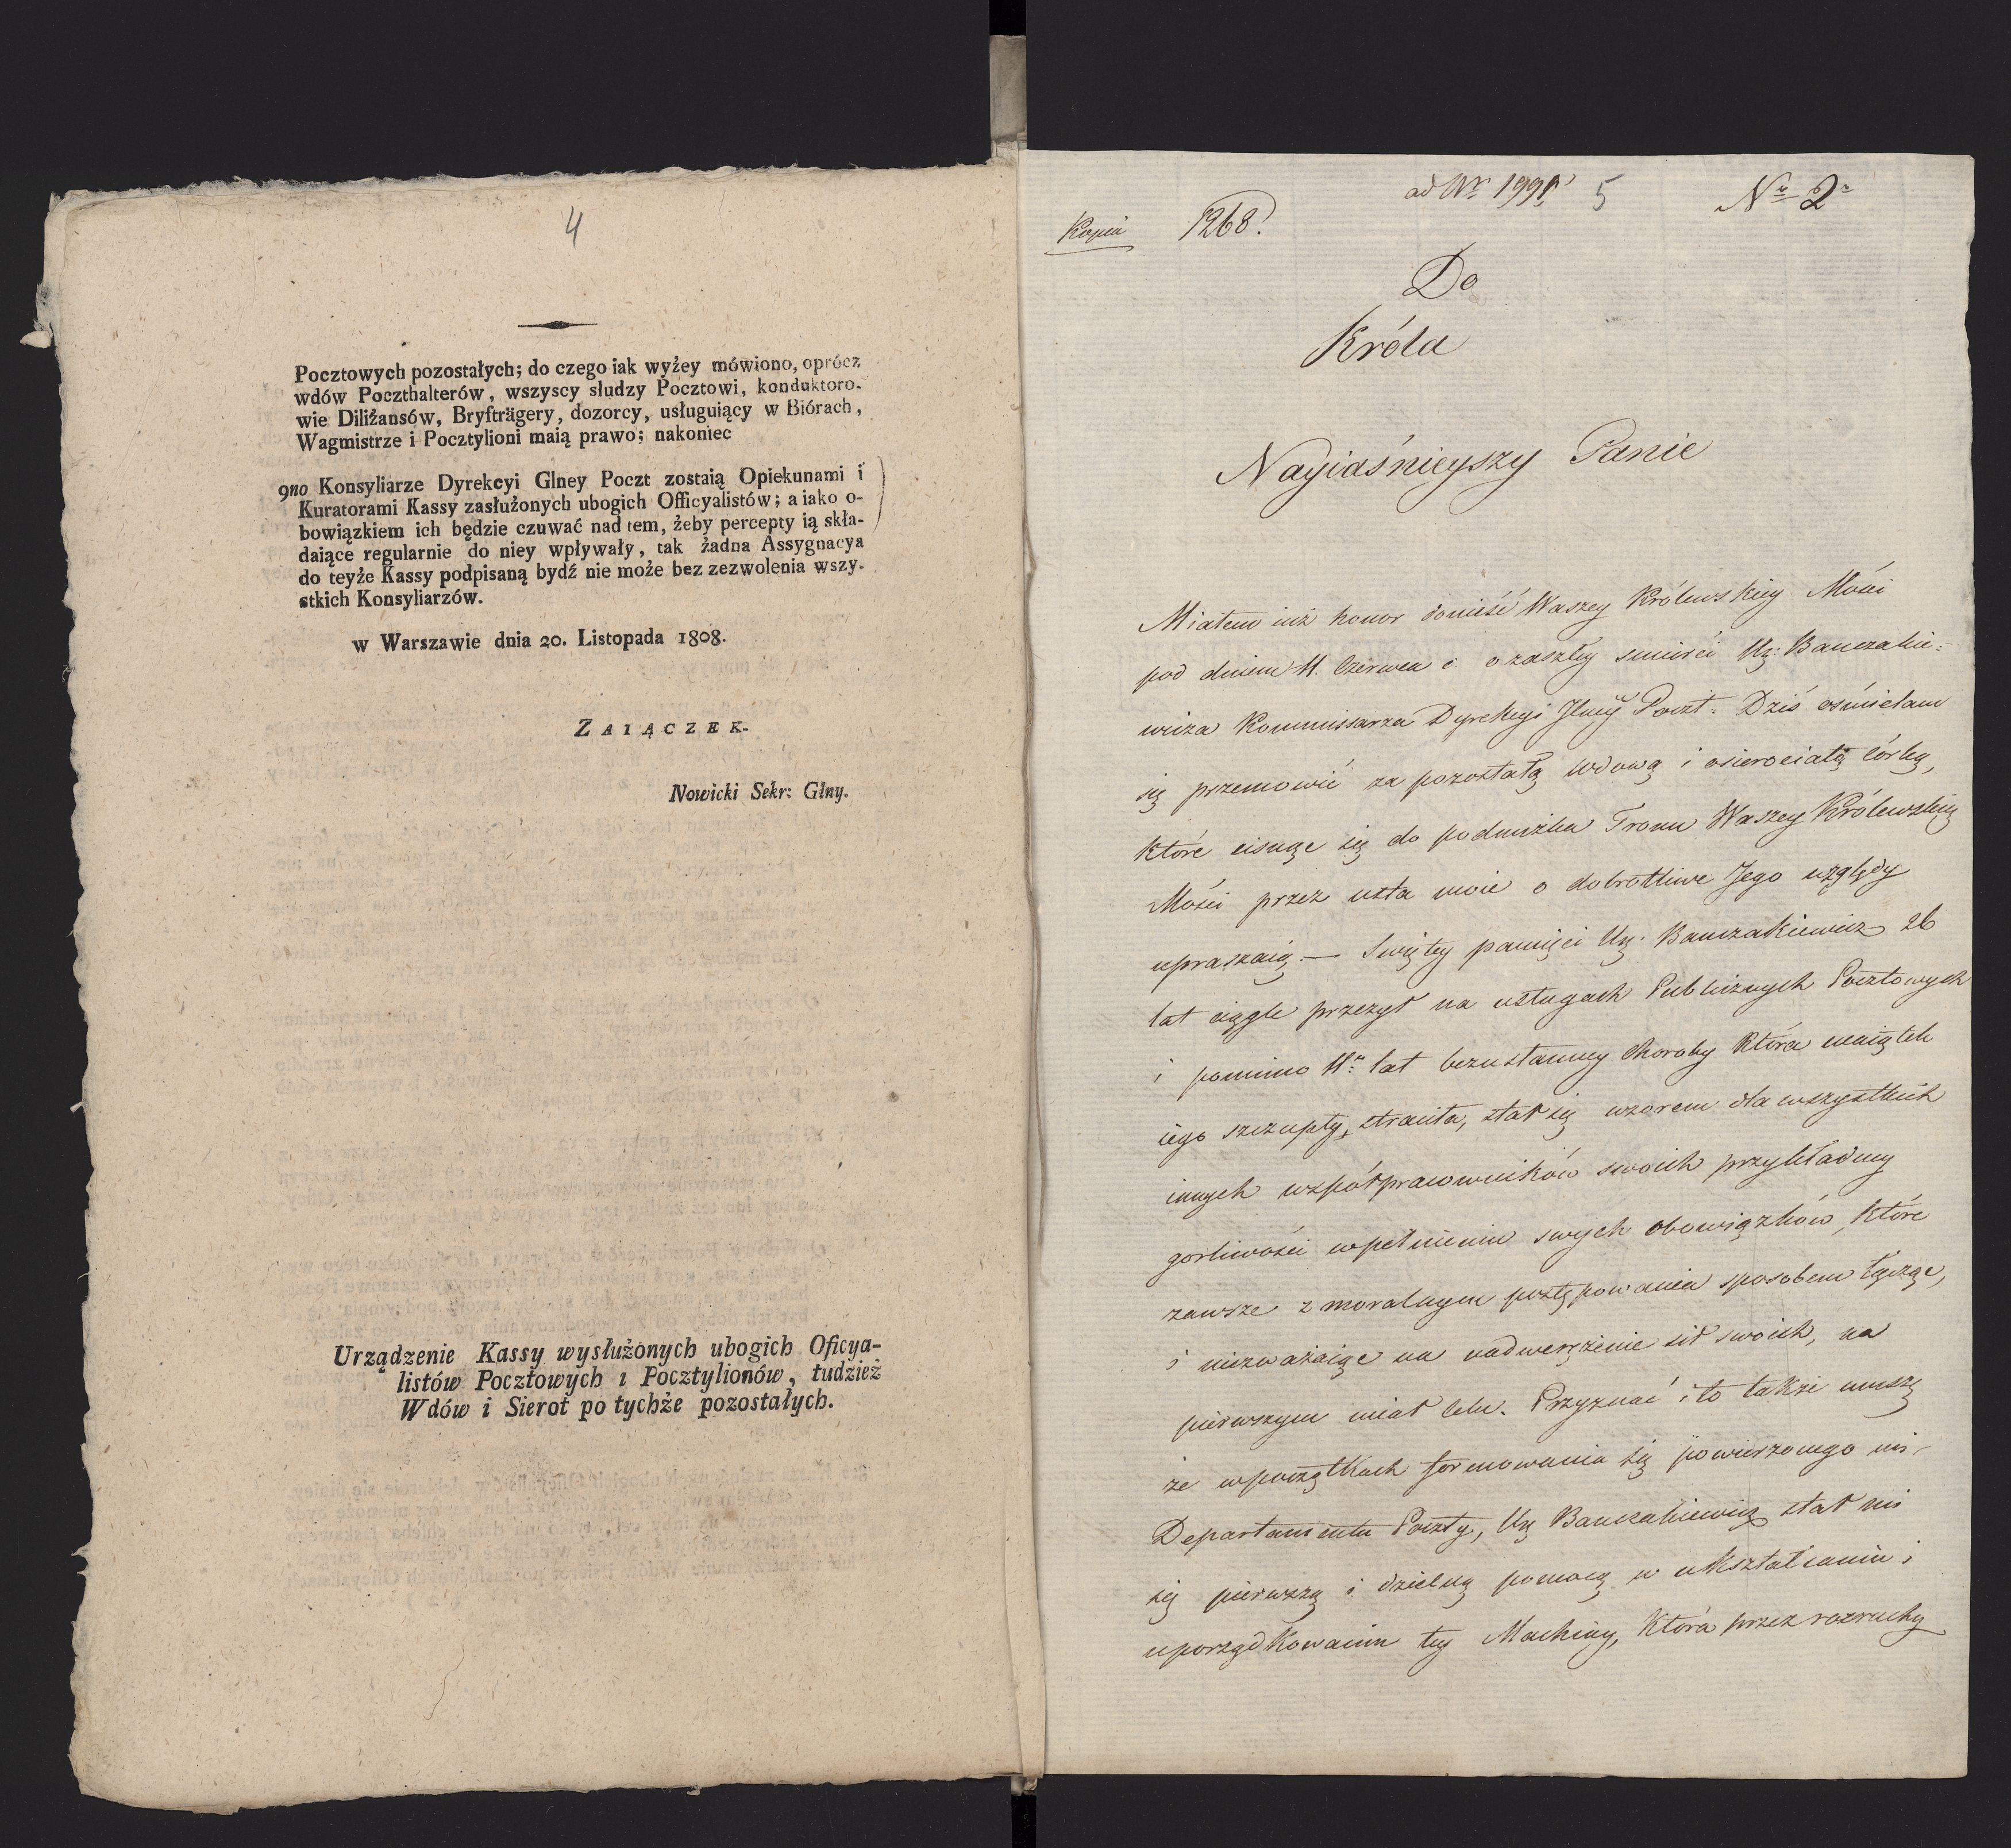 4
Pocztowych pozostałych; do czego iak wyżey mówiono, oprócz
wdów Poczthalterów, wszyscy słudzy Pocztowi, konduktoro-
wie Diliżansów, Bryfträgery, dozorcy, usługuiący w Biórach,
Wagmistrze i Pocztylioni maią prawo; nakoniec
9no Konsyliarze Dyrekcyi Glney Poczt zostaią Opiekunami i
Kuratorami Kassy zasłużonych ubogich Officyalistów; a iako o-
bowiązkiem ich będzie czuwać nad tem, żeby percepty ią skła-
daiące regularnie do niey wpływały, tak żadna Assygnacya
do teyże Kassy podpisaną bydź nie może bez zezwolenia wszy-
stkich Konsyliarzów.
w Warszawie dnia 20. Listopada 1808.
ZAIĄCZEK.
Nowicki Sekr: Głny.
Urządzenie Kassy wysłużonych ubogich Oficya-
listów Pocztowych i Pocztylionów, tudzież
Wdów i Sierot po tychże pozostałych.
ad Nr 1991 5 Nr 2
Kopia 1268.
Do
Króla
Nayiaśnieyszy Panie
Miałem iuż honor donieść Waszey Królewskiey Mości
pod dniem 11. Czerwca c. o zaszłey śmierci Ur: Banczakie-
wicza Kommissarza Dyrekcyi Jlney Poczt: Dziś ośmielam
się przemowić za pozostałą wdową i osierociałą córką,
które cisnąc się do podnóżka Tronu Waszey Królewskiey
Mości przez usta moie o dobrotliwe Jego względy
upraszaią. — Swiętey pamięci Ur: Banczakiewicz 26
lat ciągle przezył na usługach Publicznych Pocztowych
i pomimo 11 lat bezustanney choroby która maiątek
iego szczupły straciła, stał się wzorem dla wszystkich
innych współpracowników swoich przykładney
gorliwości w pełnieniu swych obowiązków, które
zawsze z moralnym postępowania sposobem łącząc,
i niezważaiąc na nadwerężenie sił swoich, na
pierwszym miał celu. Przyznać i to także muszę
że w początkach formowania się powierzonego mi
Departamentu Poczty, Ur Banczakiewicz stał mi
się pierwszą i dzielną pomocą w ukształcaniu i
uporządkowaniu tey Machiny, która przez rozruchy